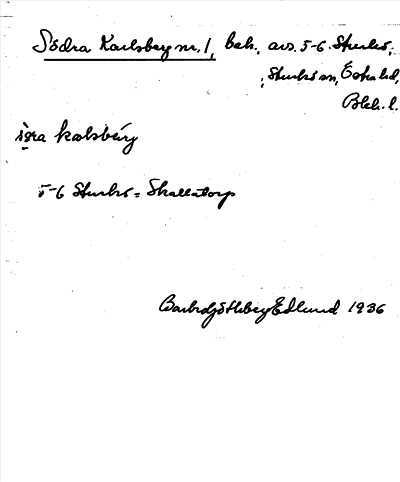 Södra Karlsberg nr. 1, beb., avs. 5-6 Sturkö,
Sturkö sn, Östra hd,
Blek. l.
söra kalsbärg
5-6 Sturkö = Skallatorp
Barbro Götlberg Edlund 1936